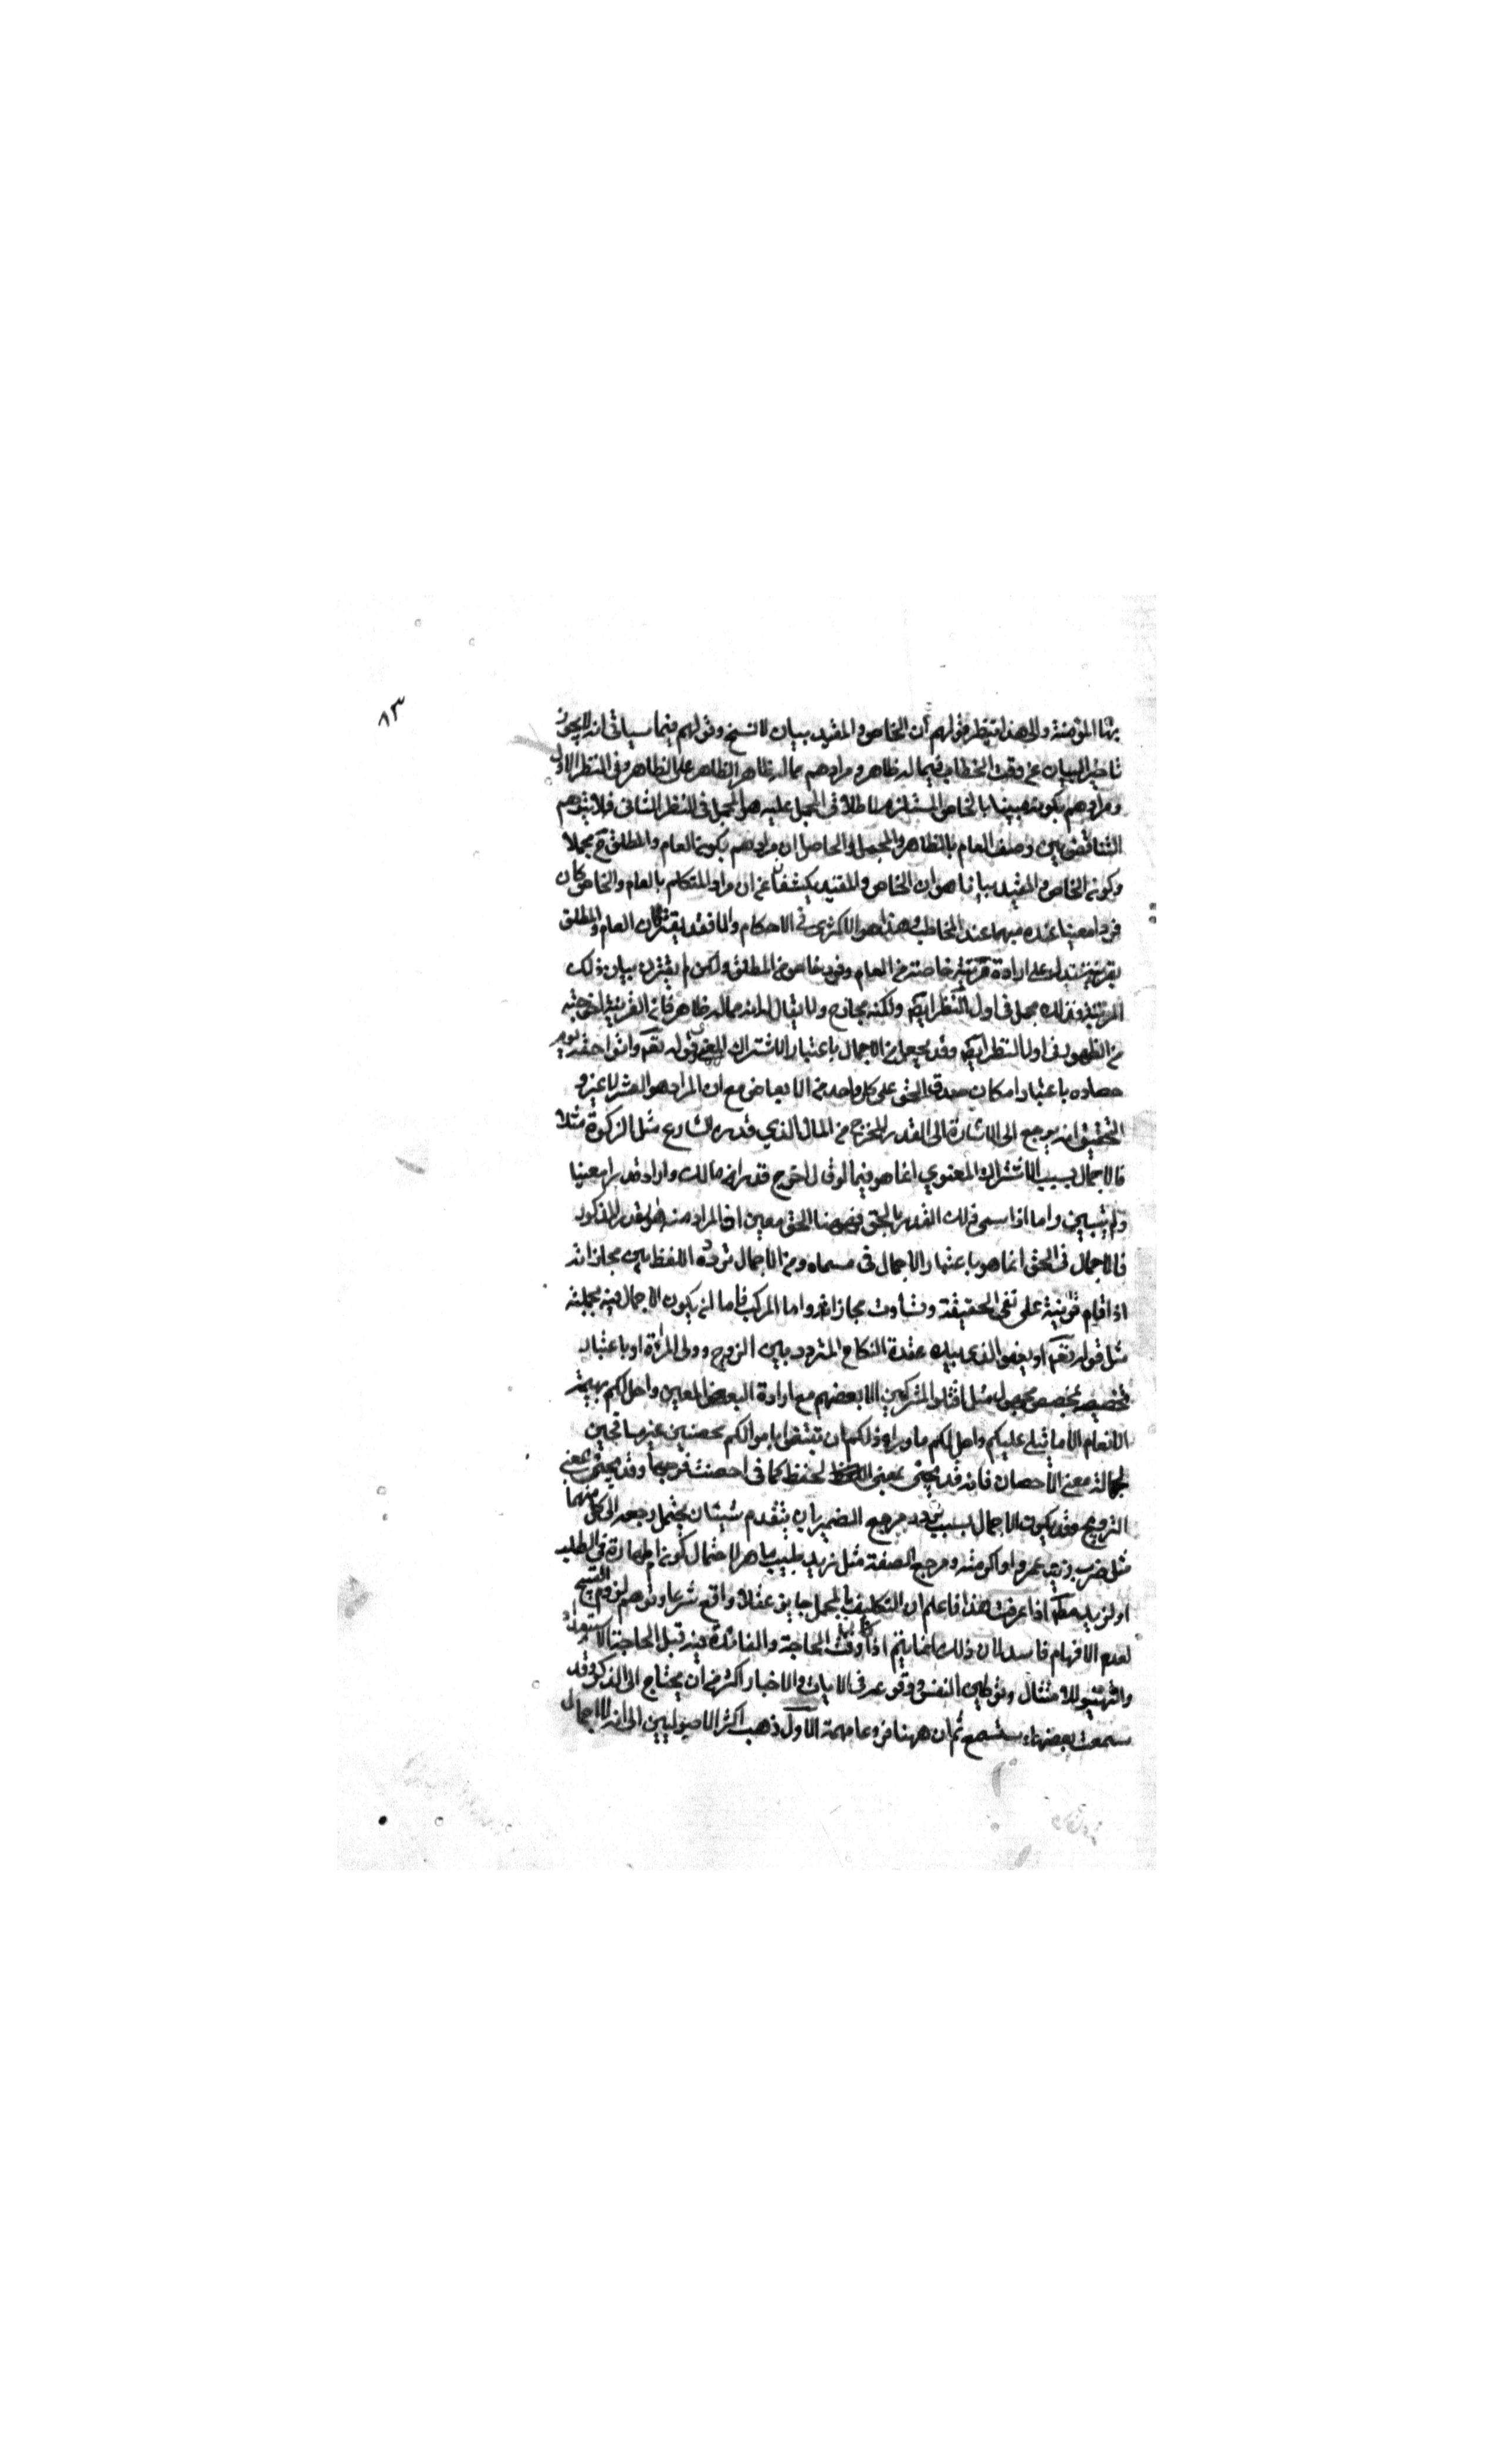 ٨٣
بها المؤمنة والى هذا ينظر قولهم ان الخاص والمقيد بيان لا نسخ وقولهم فيما سياتى انه لا يجوز
تاخير البيان عن وقت الخطاب فيما له ظاهر ومرادهم بما له ظاهر الظاهر على الظاهر وفى النظر الاول
ومرادهم بكونه مبينا بالخاص المستلزم لاطلاق المجمل عليه هو المجمل فى النظر الثانى فلا يتوهم
التناقض بين وصف العام بالظاهر والمجمل والحاصل ان مرادهم بكون العام والمطلق ح مجملا
وكون الخاص والمقيد بيانا هو ان الخاص والمقيد يكشفان عن ان مراد المتكلم بالعام والخاص كان
فردا معينا عنده مبهما عند المخاطب وهذا هو الاكثرى فى الاحكام والا فقد يقترن العام والمطلق
بقرينة تدل على ارادة مرتبة خاصة من العام وفرد خاص من المطلق ولكن لم يقترن ببيان ذلك
المرتبة فذلك مجمل فى اول النظر ايضا ولكنه مجاز ح ولا يقال له انه مما له ظاهر فان القرينة اخرجته
من الظهور فى اول النظر ايضا وقد يجعل من الاجمال باعتبار الاشتراك المعنوى قوله تعم واتوا حقه يوم
حصاده باعتبار امكان صدق الحق على كل واحد من الابعاض مع ان المراد هو العشر لا غير و
التحقيق انه يرجع الى الاشارة الى القدر المخرج من المال الذي قدره الشارع مثل الزكوة مثلا
فالاجمال بسبب الاشتراك المعنوي انما هو فيما لو قال اخرج قدرا من مالك واراد قدرا معينا
ولم يتبين واما اذا سمى ذلك القدر بالحق فهنا الحق معين اذ المراد منه هو القدر المذكور
فالاجمال فى الحق انما هو باعتبار الاجمال فى مسماه ومن الاجمال تردد اللفظ بين مجازاته
اذا قام قرينة على نفى الحقيقة وتساوت مجازاته واما المركب فاما ان يكون الاجمال فيه بجملته
مثل قوله تعم او يعفو الذى بيده عقدة النكاح المتردد بين الزوج وولى المراة او باعتبار
تخصيصه بمخصص مجهول مثل اقتلوا المشركين الا بعضهم مع ارادة البعض المعين واحل لكم بهيمة
الانعام الا ما يتلى عليكم واحل لكم ما وراء ذلكم ان تبتغوا باموالكم محصنين غير مسافحين
لجهالة معنى الاحصان فانه قد يجئ بمعنى الحفظ كما فى احصنت فرجها وقد يجئ بمعنى
التزويج وقد يكون الاجمال بسبب تردد مرجع الضمير بان يتقدم شيئان يحتمل رجعه الى كل منهما
مثل ضرب زيد عمروا واكرمته ومرجع الصفة مثل زيد طبيب ماهر لاحتمال كون المهارة فى الطب
او لزيد مطم اذا عرفت هذا فاعلم ان التكليف بالمجمل جايز عقلا واقع شرعا وتوهم لزوم القبح
لعدم الافهام فاسد لان ذلك انما يتم اذا كان وقت الحاجة والفائدة فيه قبل الحاجة الاستعداد
والتهيؤ للامتثال وتوطين النفس ووقوعه فى الايات والاخبار اكثر من ان يحتاج الى الذكر وقد
سمعت بعضها وستسمع ثم ان ههنا فروعا مهمة الاول ذهب اكثر الاصوليين الى انه لا اجمال